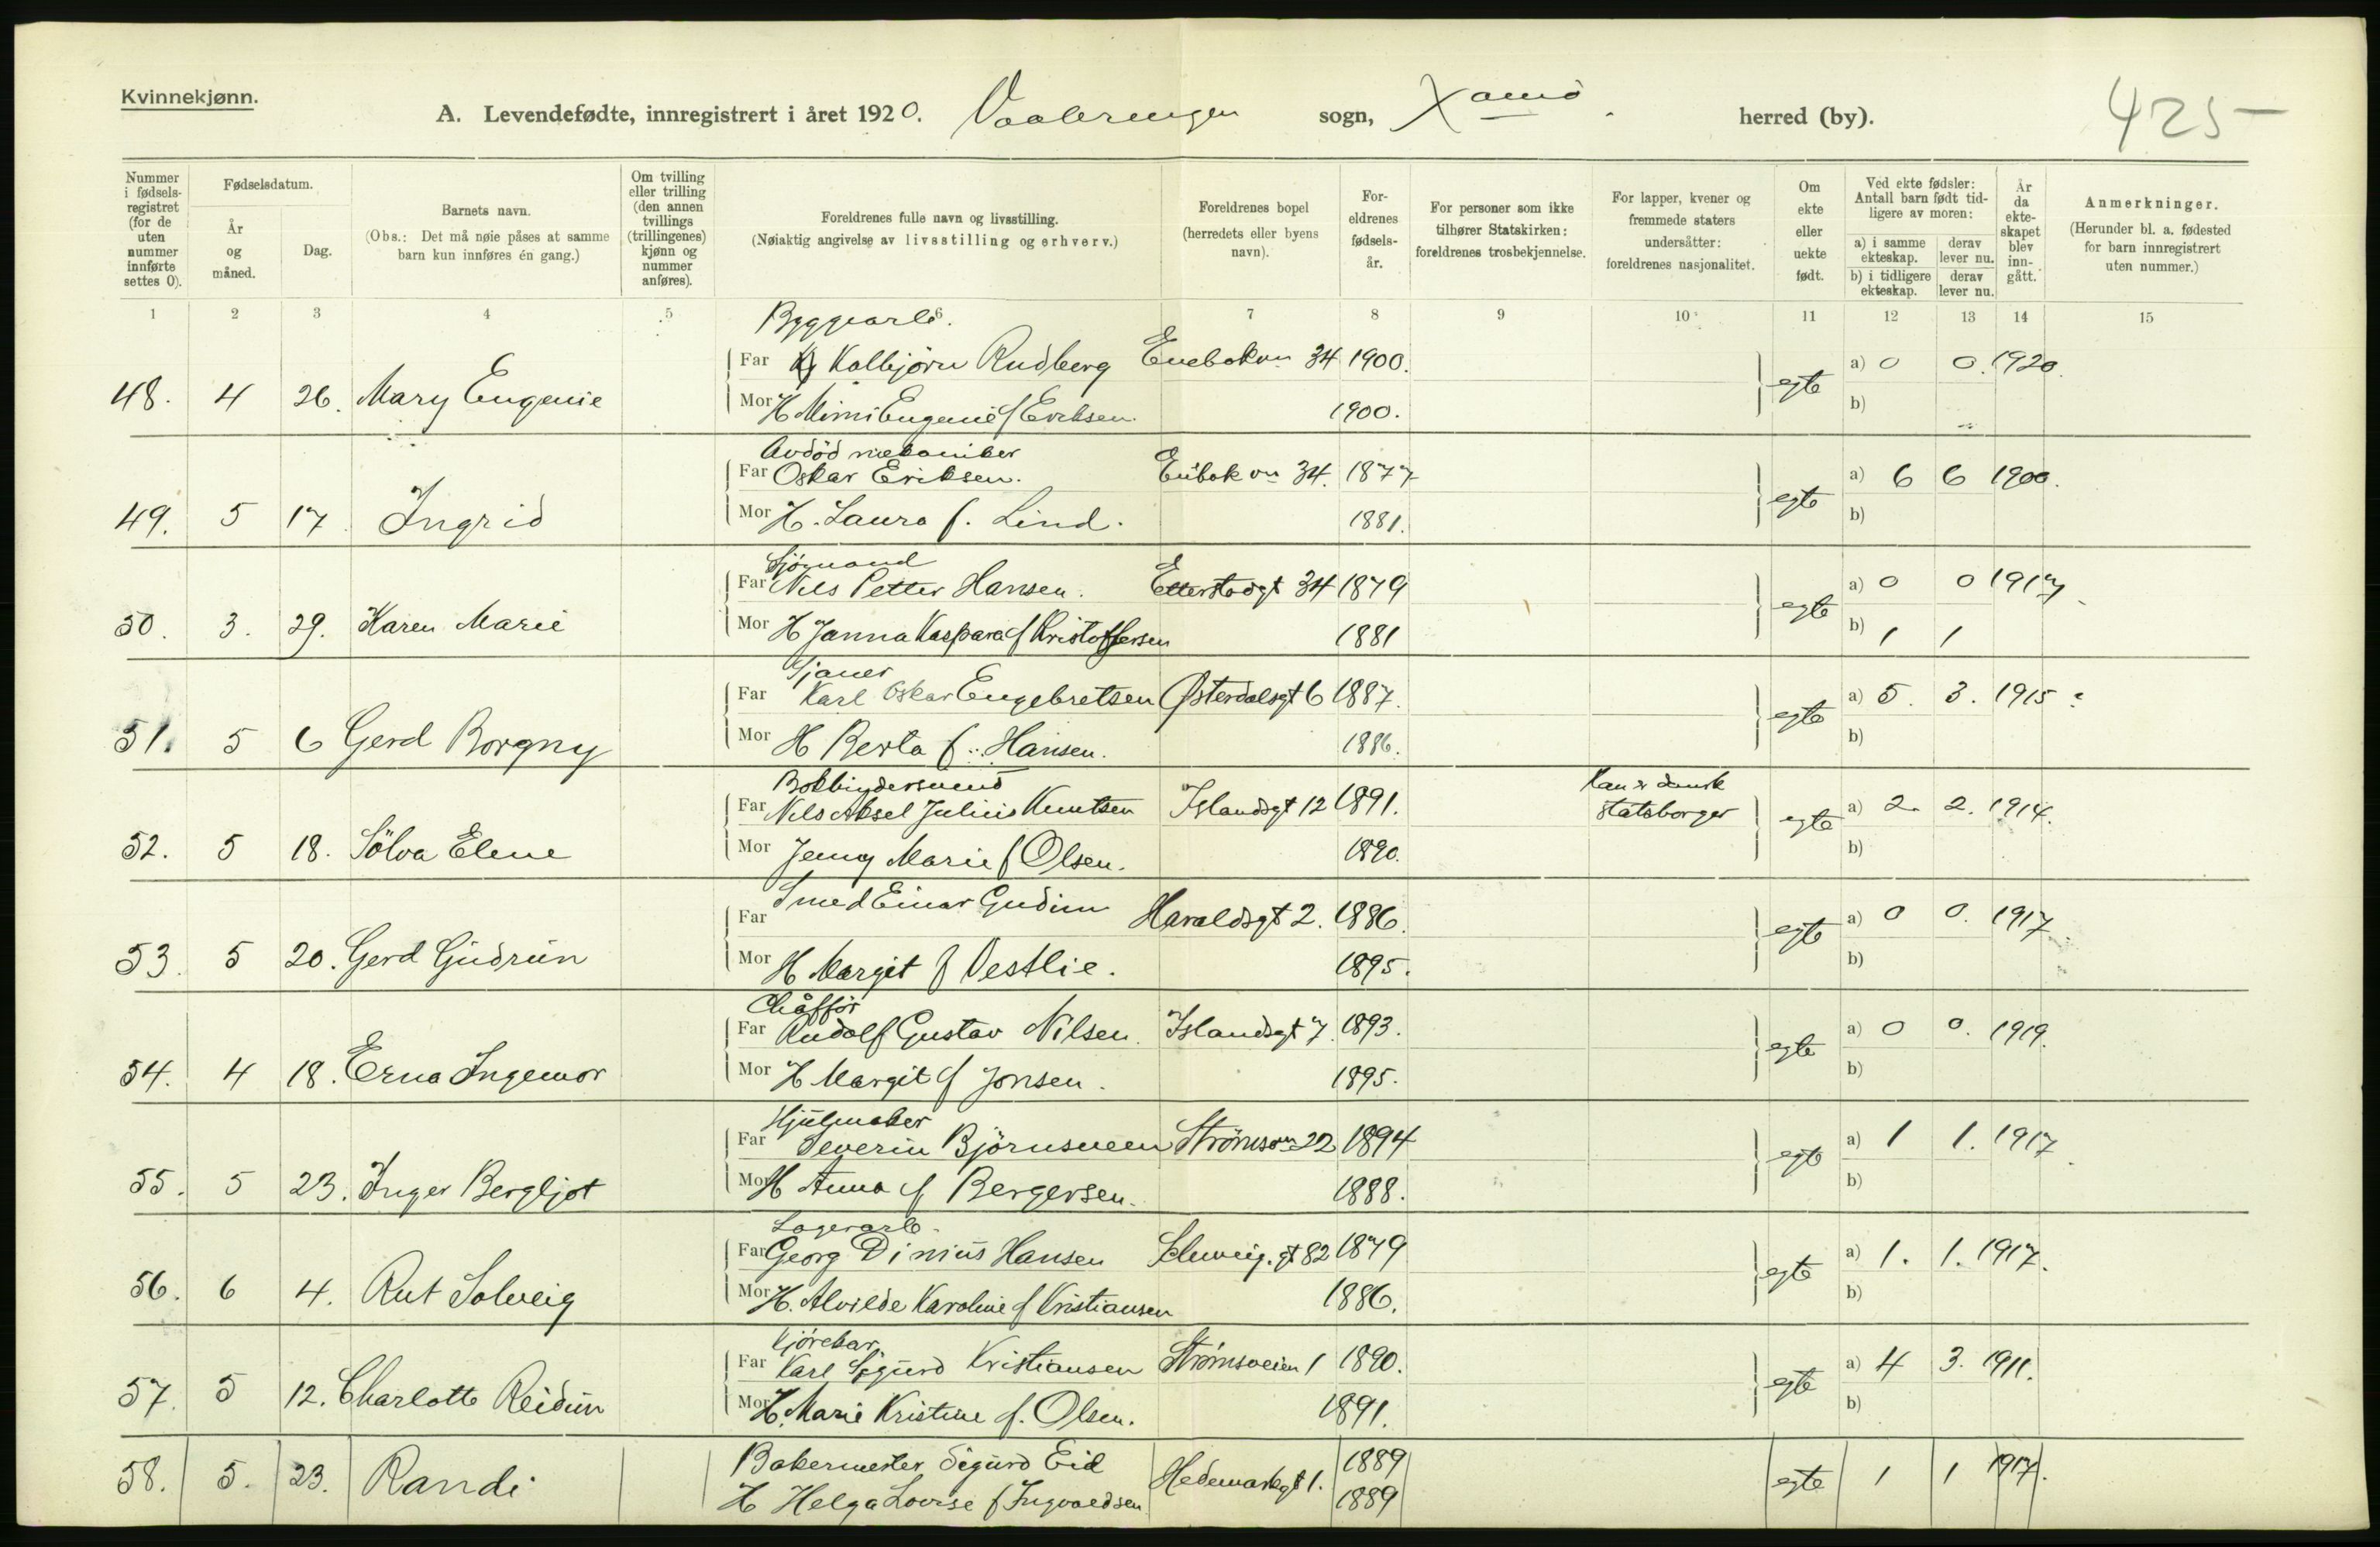 Kvinnekjønn.
A. Levendefødte, innregistrert i året 1920. Vaalerengen sogn, Xania herred (by).
425
Nummer i fødselsregistret (for de uten nummer innførte settes 0).
Fødselsdatum.
År og måned.
Dag.
Barnets navn.
(Obs.: Det må nøie påses at samme barn kun innføres én gang.)
Om tvilling eller trilling (den annen tvillings (trillingenes) kjønn og nummer anføres).
Foreldrenes fulle navn og livsstilling.
(Nøiaktig angivelse av livsstilling og erhverv.)
Foreldrenes bopel (herredets eller byens navn).
Foreldrenes fødselsår.
For personer som ikke tilhører Statskirken: foreldrenes trosbekjennelse.
For lapper, kvener og fremmede staters undersåtter: foreldrenes nasjonalitet.
Om ekte eller uekte født.
Ved ekte fødsler: Antall barn født tidligere av moren:
a) i samme ekteskap. derav lever nu.
b) i tidligere ekteskap. derav lever nu.
År da ekteskapet blev inngått.
Anmerkninger.
(Herunder bl. a. fødested for barn innregistrert uten nummer.)
1 2 3 4 5 6 7 8 9 10 11 12 13 14 15
Byggearb.
Far Kolbjörn Rudberg Enebakvn 34 1900. a) 0 0. 1920.
48. 4 26. Mary Eugenie egte
Mor H Mimi Eugenie f Eriksen. 1900. b)
Avdöd mekaniker
Far Oskar Eriksen. Enbak vn 34. 1877 a) 6 6 1900.
49. 5 17 Ingrid egte
Mor H. Laura f. Lind. 1881. b)
Sjömand
Far Nils Petter Hansen. Etterstadgt 34 1879 a) 0 0 1917
50. 3. 29. Karen Marie egte
Mor H Janna Kaspara f Kristoffersen 1881 b) 1 1
Far Karl Oskar Engebretsen Østerdalsgt 6 1887. a) 5. 3. 1915
51. 5 6 Gerd Borgny egte
Mor H Berta f. Hansen. 1886. b)
Bokbindersvend Han er dansk
Far Nils Aksel Julius Knutsen Islandsgt 12 1891. statsborger a) 2. 2. 1914.
52. 5 18. Sölva Elene egte
Mor Jenny Marie f Olsen. 1890. b)
Far Smed Einar Gudim Haraldsgt 2. 1886. a) 0 0. 1917
53. 5 20. Gerd Gudrun egte
Mor H Margit f Vestlie. 1895. b)
Chåfför
Far Rudolf Gustav Nilsen. Islandsgt 7. 1893. a) 0 0. 1919.
54. 4 18. Erna Ingemor egte
Mor H Margit f Jonsen. 1895. b)
Hjulmaker
Far Severin Björnsveen Strömsvn 22 1894 a) 1 1. 1917
55. 5 23. Inger Bergljot egte
Mor H Anna f Bergersen. 1888. b)
Lagerarb.
Far Georg Dinius Hansen Schweig.gt 82 1879 a) 1. 1. 1917.
56. 6 4. Rut Solveig egte
Mor H. Alvilde Karoline f Kristiansen 1886. b)
Kjörekar
Far Karl Sigurd Kristiansen Strömsveien 1 1890. a) 4 3. 1911.
57. 5 12. Charlotte Reidun egte
Mor H. Marie Kristine f. Olsen. 1891. b)
Bakermester Sigurd Eid 1889
58. 5. 23. Randi Hedemarksgt 1. egte 1 1 1917.
H Helga Lovise f Ingvaldsen 1889